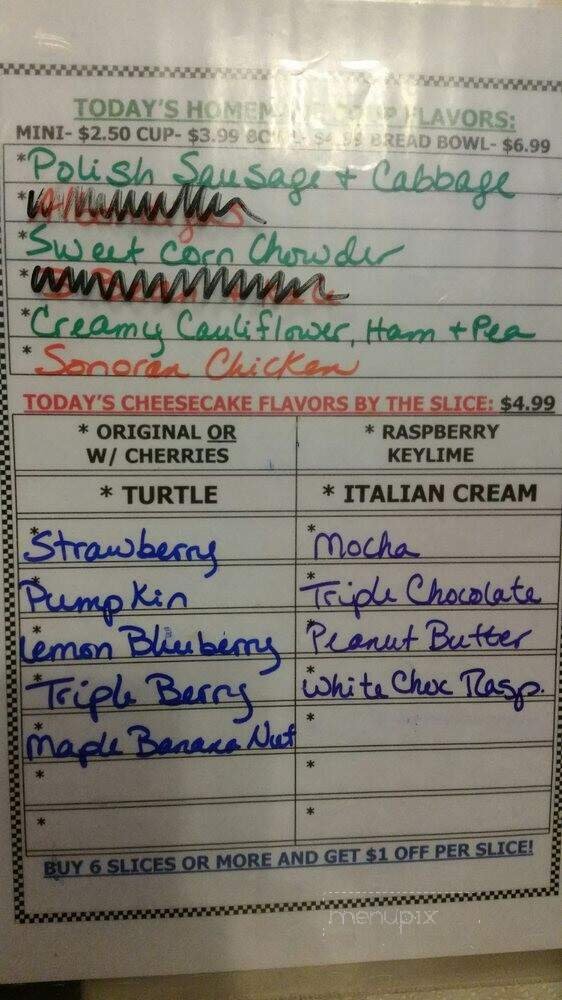 TODAY'S HOMEMADE SOUP FLAVORS:
MINI- $2.50 CUP- $3.99 BOWL- $4.99 BREAD BOWL- $6.99
* Polish Sausage + Cabbage
*
* Sweet Corn Chowder
*
* Creamy Cauliflower, Ham + Pea
* Sonoran Chicken
TODAY'S CHEESECAKE FLAVORS BY THE SLICE: $4.99
* ORIGINAL OR
W/ CHERRIES
* RASPBERRY
KEYLIME
* TURTLE
* ITALIAN CREAM
* Strawberry
* Mocha
* Pumpkin
* Triple Chocolate
* Lemon Blueberry
* Peanut Butter
* Triple Berry
* White Choc Rasp.
* Maple Banana Nut
*
*
*
*
*
BUY 6 SLICES OR MORE AND GET $1 OFF PER SLICE!
menupix